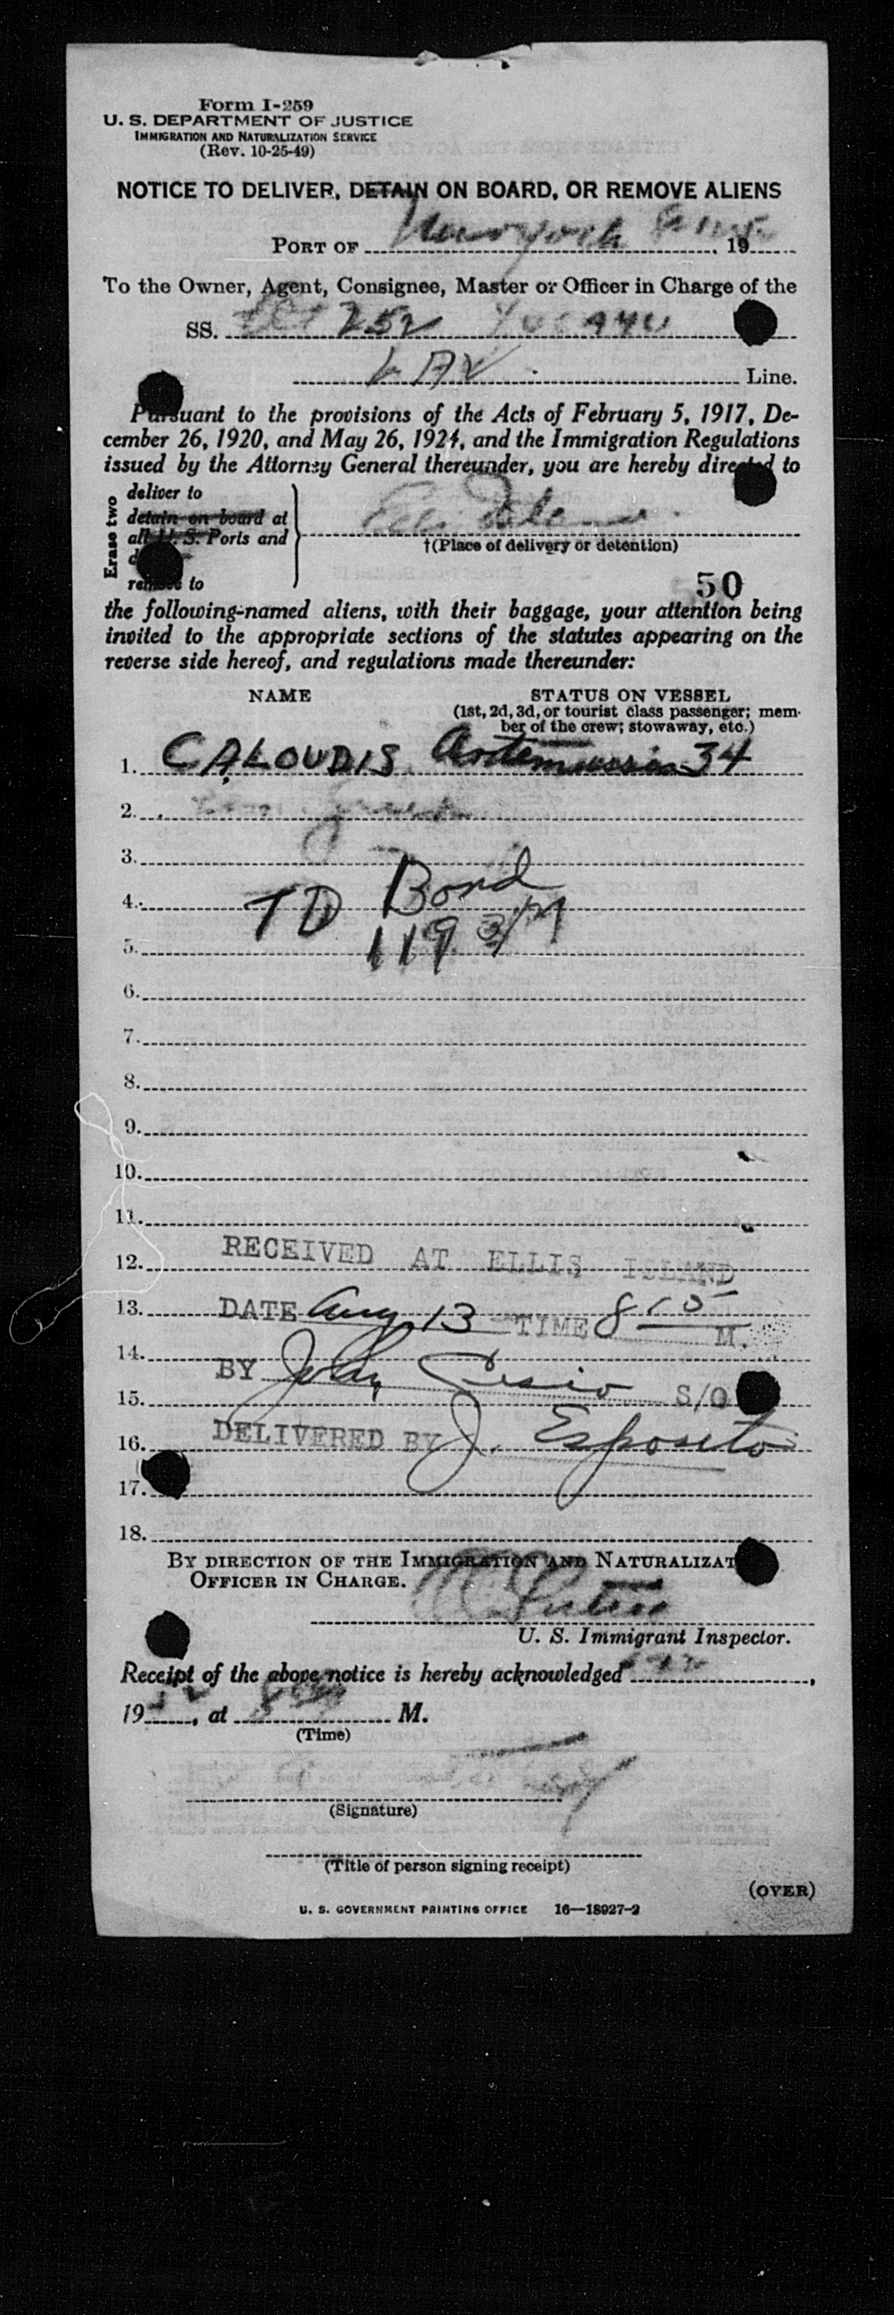 Form I-259
U. S. DEPARTMENT OF JUSTICE
IMMIGRATION AND NATURALIZATION SERVICE
(Rev. 10-25-49)
NOTICE TO DELIVER, DETAIN ON BOARD, OR REMOVE ALIENS
PORT OF New York , 19
To the Owner, Agent, Consignee, Master or Officer in Charge of the
SS. 252
LAV Line.
Pursuant to the provisions of the Acts of February 5, 1917, De-
cember 26, 1920, and May 26, 1924, and the Immigration Regulations
issued by the Attorney General thereunder, you are hereby directed to
Erase two
deliver to
detain on board at
all U. S. Ports and
remove to
Ellis Island
†(Place of delivery or detention)
50
the following-named aliens, with their baggage, your attention being
invited to the appropriate sections of the statutes appearing on the
reverse side hereof, and regulations made thereunder:
NAME STATUS ON VESSEL
(1st, 2d, 3d, or tourist class passenger; mem-
ber of the crew; stowaway, etc.)
1. CALOUDIS 34
2.
3.
4. TD Bond
5. 119
6.
7.
8.
9.
10.
11.
12. RECEIVED AT ELLIS ISLAND
13. DATE Aug 13 TIME 8 15 M.
14.
BY John S/O
15.
16. DELIVERED BY J. Esposito
17.
18.
BY DIRECTION OF THE IMMIGRATION AND NATURALIZAT
OFFICER IN CHARGE.
U. S. Immigrant Inspector.
Receipt of the above notice is hereby acknowledged ,
19 52, at M.
(Time)
(Signature)
(Title of person signing receipt)
(OVER)
U. S. GOVERNMENT PRINTING OFFICE 16—18927-2